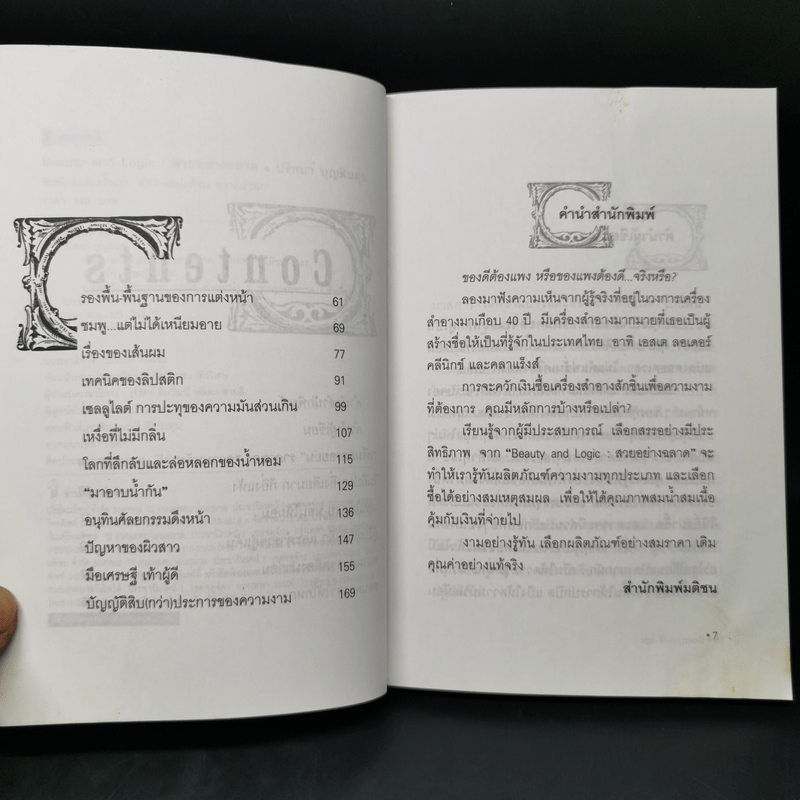 รองพื้น-พื้นฐานของการแต่งหน้า 61
ชมพู...แต่ไม่ได้เหนียมอาย 69
เรื่องของเส้นผม 77
เทคนิคของลิปสติก 91
เซลลูไลต์ การปะทุของความมันส่วนเกิน 99
เหงื่อที่ไม่มีกลิ่น 107
โลกที่ลึกลับและล่อหลอกของน้ำหอม 115
"มาอาบน้ำกัน" 129
อนุทินศัลยกรรมดึงหน้า 136
ปัญหาของผิวสาว 147
มือเศรษฐี เท้าผู้ดี 155
บัญญัติสิบ(กว่า)ประการของความงาม 169
คำนำสำนักพิมพ์
ของดีต้องแพง หรือของแพงต้องดี...จริงหรือ?
ลองมาฟังความเห็นจากผู้รู้จริงที่อยู่ในวงการเครื่อง
สำอางมาเกือบ 40 ปี มีเครื่องสำอางมากมายที่เธอเป็นผู้
สร้างชื่อให้เป็นที่รู้จักในประเทศไทย อาทิ เอสเต ลอเดอร์
คลีนิกข์ และคลาแร็งส์
การจะควักเงินซื้อเครื่องสำอางสักชิ้นเพื่อความงาม
ที่ต้องการ คุณมีหลักการบ้างหรือเปล่า?
เรียนรู้จากผู้มีประสบการณ์ เลือกสรรอย่างมีประ
สิทธิภาพ จาก "Beauty and Logic : สวยอย่างฉลาด" จะ
ทำให้เรารู้ทันผลิตภัณฑ์ความงามทุกประเภท และเลือก
ซื้อได้อย่างสมเหตุสมผล เพื่อให้ได้คุณภาพสมน้ำสมเนื้อ
คุ้มกับเงินที่จ่ายไป
งามอย่างรู้ทัน เลือกผลิตภัณฑ์อย่างสมราคา เติม
คุณค่าอย่างแท้จริง
สำนักพิมพ์มติชน
• 7